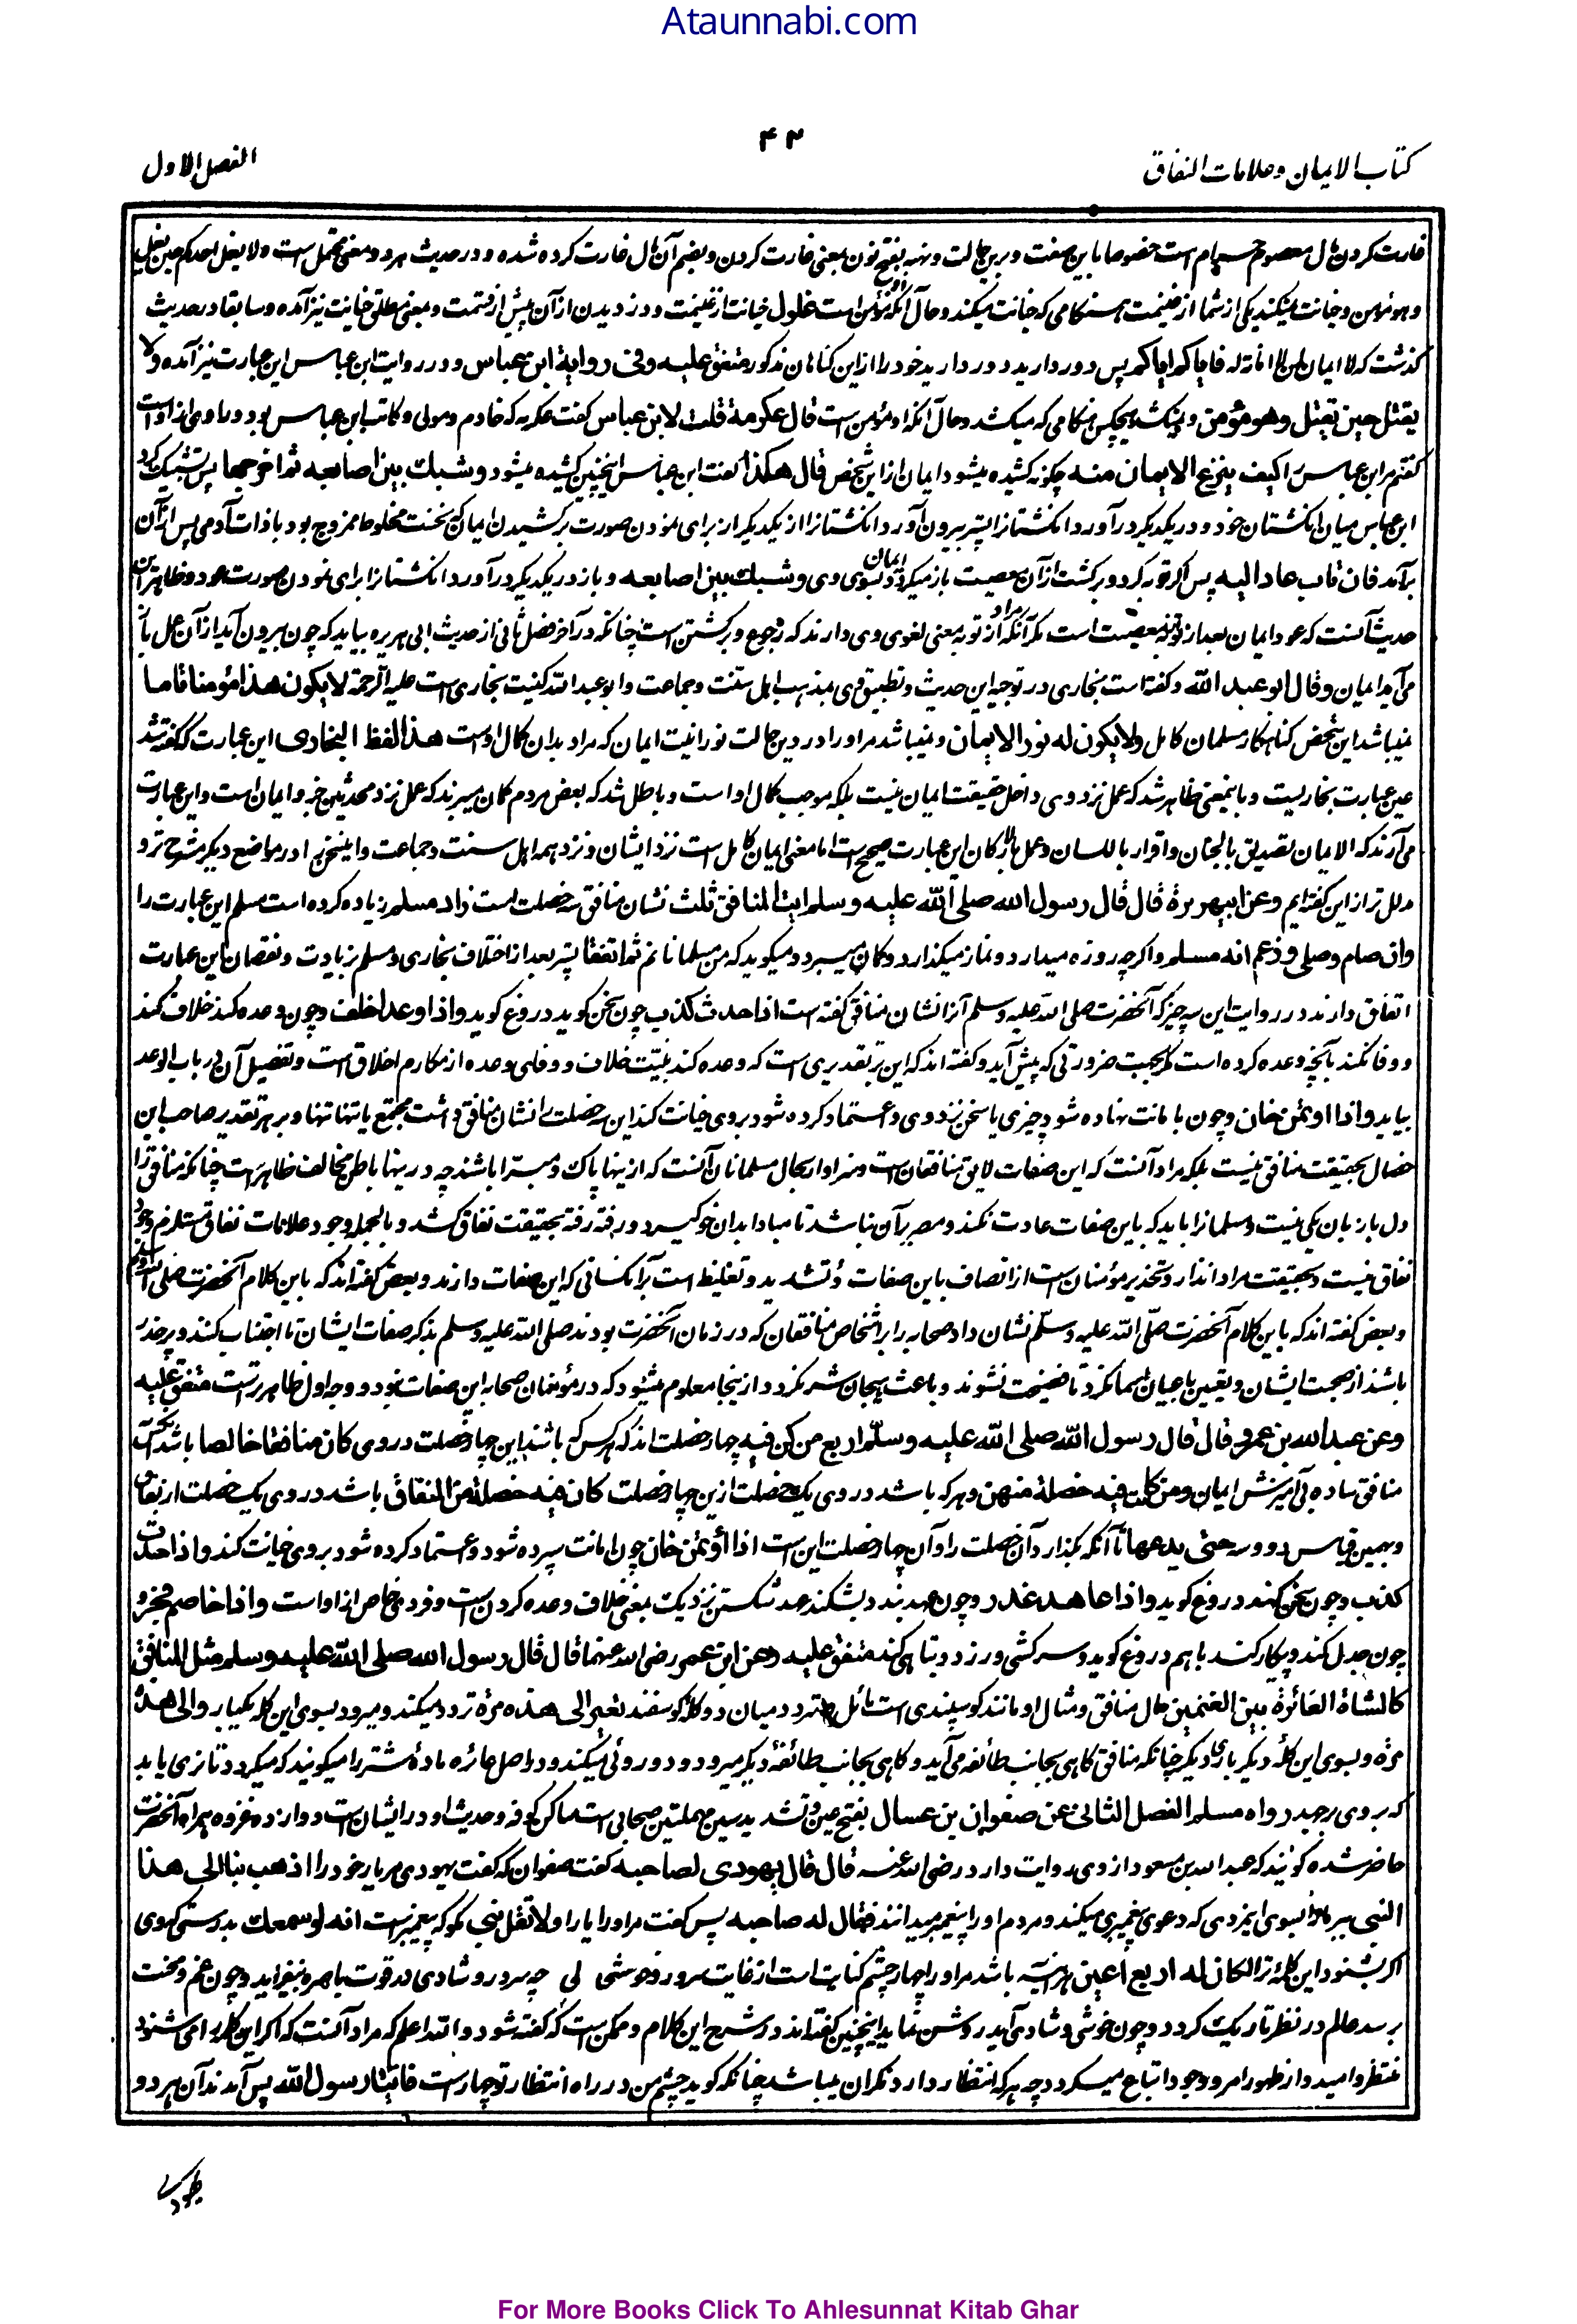 Ataunnabi.com
۴۳
کتاب الایمان وعلامات النفاق
الفصل الاول
غارت کردن مال معصوم حرام است خصوصا باین صفت و برین حالت ونهبه بفتح نون بمعنی غارت کردن وبضم آن مال غارت کرده شده و در حدیث هر دو معنی محتمل است ولا یغل احدکم حین یغل
وهو مؤمن وخیانت نمیکند یکی از شما از غنیمت هنگامی که خیانت میکند وحال آنکه او مؤمن است غلول خیانت از غنیمت و دزدیدن از آن پیش از قسمت وبمعنی مطلق خیانت نیز آمده وسابقا در حدیث
گذشت که لا ایمان لمن لا امانة له فایاکم ایاکم پس دور دارید دور دارید خود را از این گناهان مذکور متفق علیه وفی روایة ابن عباس و در روایت ابن عباس این عبارت نیز آمده ولا
یقتل حین یقتل وهو مؤمن ونمیکشد هیچکس هنگامی که میکشد وحال آنکه او مؤمن است قال عکرمة قلت لابن عباس گفت عکرمه که خادم ومولی وکاتب ابن عباس بود و راوی از او است
گفتم مر ابن عباس را کیف ینزع الایمان منه چگونه کشیده میشود ایمان ازاین شخص قال هکذا گفت ابن عباس اینچنین کشیده میشود وشبك بین اصابعه ثم اخرجها پس تشبیک کرد
ابن عباس میان انگشتان خود و در یکدیگر درآورد انگشتانرا پستر بیرون آورد انگشتانرا از یکدیگر از برای نمودن صورت برکشیدن ایمان که نخست مخلوط وممزوج بود با ذات آدمی پس از آن
برآمد فان تاب عاد الیه پس اگر توبه کرد و برگشت از آن معصیت باز میگردد ایمان بسوی وی وشبك بین اصابعه و باز در یکدیگر درآورد انگشتانرا برای نمودن صورت عود وظاهر این
حدیث آنست که عود ایمان بعد از توبه معصیت است مگر آنکه مراد از توبه معنی لغوی وی دارند که رجوع و برگشتن است چنانکه در آخر فصل ثانی از حدیث ابی هریره بیاید که چون بیرون آید از آن عمل باز
می آید ایمان وقال ابو عبد الله وگفته است بخاری در توجیه این حدیث وتطبیق وی بمذهب اهل سنت وجماعت وابو عبد الله کنیت بخاری است علیه الرحمة لا یکون هذا مؤمنا تاما
نمیباشد این شخص گناهکار مسلمان کامل ولا یکون له نور الایمان ونمیباشد مر او را درین حالت نورانیت ایمان که مراد بدان کمال اوست هذا لفظ البخاری این عبارت که گفته شد
عین عبارت بخاریست وباینمعنی ظاهر شد که عمل نزد وی داخل حقیقت ایمان نیست بلکه موجب کمال او است وباطل شد که بعض مردم گمان میبرند که عمل نزد محدثین جزو ایمان است واین عبارت
می آرند که الایمان تصدیق بالجنان واقرار باللسان وعمل بالارکان این عبارت صحیح است اما معنی ایمان کامل است نزد ایشان ونزد همه اهل سنت وجماعت واین سخن را در مواضع دیگر مشرح تر و
مدلل تر از این گفته ایم وعن ابی هریرة قال قال رسول الله صلی الله علیه وسلم آیة المنافق ثلث نشان منافق سه خصلت است زاد مسلم زیاده کرده است مسلم این عبارت را
وان صام وصلی وزعم انه مسلم واگرچه روزه میدارد ونماز میگذارد وگمان میبرد ومیگوید که من مسلمانم ثم اتفقا پستر بعد از اختلاف بخاری ومسلم بزیادت ونقصان این عبارت
اتفاق دارند در روایت این سه چیز که آنحضرت صلی الله علیه وسلم آنرا نشان منافق گفته است اذا حدث کذب چون سخن گوید دروغ گوید واذا وعد اخلف وچون وعده کند خلاف کند
و وفا نکند بآنچه وعده کرده است مگر بجهت ضرورتی که پیش آید وگفته اند که این بر تقدیری است که وعده کند بنیت خلاف و وفای وعده از مکارم اخلاق است وتفصیل آن در باب الوعد
بیاید واذا اؤتمن خان وچون بامانت نهاده شود چیزی یا سخن نزد وی واعتماد کرده شود بر وی خیانت کند این سه خصلت را نشان منافق داشت مجتمع یا تنها تنها وبر هر تقدیر صاحب این
خصال بحقیقت منافق نیست بلکه مراد آنست که این صفات لایق منافقان است وسزاوار بحال مسلمانان آنست که از ینها پاک ومبرا باشند چه در ینها باطن مخالف ظاهر است چنانکه منافق را
دل با زبان یکی نیست ومسلمانرا باید که باین صفات عادت نکند ومصر بر آن نباشد تا مبادا بدان خو گیرد ورفته رفته بحقیقت نفاق کشد وبالجمله وجود علامات نفاق مستلزم وجود
نفاق نیست وبحقیقت مراد انذار وتحذیر مؤمنان است از اتصاف باین صفات وتشدید وتغلیظ است بر آن کسانی که این صفات دارند وبعض گفته اند که باین کلام آنحضرت صلی الله علیه وسلم
وبعض گفته اند که باین کلام آنحضرت صلی الله علیه وسلم نشان داد صحابه را بر اشخاص منافقان که در زمان آنحضرت بودند صلی الله علیه وسلم بذکر صفات ایشان تا اجتناب کنند وبر حذر
باشند از صحبت ایشان وتعیین باعیان واسما نکرد تا فضیحت نشوند وباعث هیجان شر نگردد از ینجا معلوم میشود که در مؤمنان صحابه این صفات نبود و وجه اول ظاهرتر است متفق علیه
وعن عبد الله بن عمرو قال قال رسول الله صلی الله علیه وسلم اربع من کن فیه چهار خصلت اند که هر کس که باشند این چهار خصلت در وی کان منافقا خالصا باشد آنکس
منافق ساده بی آمیزش ایمان ومن کانت فیه خصلة منهن وهر که باشد در وی یک خصلت ازین چهار خصلت کان فیه خصلة من النفاق باشد در وی یک خصلت از نفاق
وبهمین قیاس دو وسه حتی یدعها تا آنکه بگذارد آن خصلت را وآن چهار خصلت این است اذا اؤتمن خان چون امانت سپرده شود واعتماد کرده شود بر وی خیانت کند واذا حدث
کذب وچون سخن کند دروغ گوید واذا عاهد غدر وچون عهد بندد بشکند عهد شکستن نزدیک بمعنی خلاف وعده کردن است وفردی خاص از او است واذا خاصم فجر و
چون جدل کند وپیکار کند باهم دروغ گوید وسرکشی ورزد وتباهی کند متفق علیه وعن ابن عمر رضی الله عنهما قال قال رسول الله صلی الله علیه وسلم مثل المنافق
کالشاة العائرة بین الغنمین حال منافق ومثال او مانند گوسپندی است مائل ومتردد میان دو گله گوسفند تعیر الی هذه مرة تردد میکند ومیرود بسوی این گله یکبار والی هذه
مرة وبسوی این گله دیگر باری دیگر چنانکه منافق گاهی بجانب طائفه می آید وگاهی بجانب طائفه دیگر میرود و دو روئی میکند ودر اصل عائره مادۀ شتر را میگویند که میگردد تا نری یابد
که بر وی رجهد رواه مسلم الفصل الثانی عن صفوان بن عسال بفتح عین وتشدید سین مهملتین صحابی است ساکن کوفه وحدیث او در ایشان است دوازده غزوه همراه آنحضرت
حاضر شده گویند که عبد الله بن مسعود از وی روایت دارد رضی الله عنه قال قال یهودی لصاحبه گفت صفوان که گفت یهودی مر یار خود را اذهب بنا الی هذا
النبی ببر ما را بسوی اینمردی که دعوی پیغمبری میکند ومردم او را پیغمبر میدانند فقال له صاحبه پس گفت مر او را یار او لا تقل نبی مگو که پیغمبر است انه لو سمعك بدرستی که وی
اگر بشنود این کلمه ترا لکان له اربع اعین هر آئینه باشد مر او را چهار چشم کنایت است از غایت سرور وخوشی لی چه سرور وشادی در قوت باصره بیفزاید وچون غم ومحنت
برسد عالم در نظر تاریک گردد وچون خوشی وشادی آید روشن نماید اینچنین گفته اند در شرح این کلام وممکن است که گفته شود والله اعلم که مراد آنست که اگر این کلمه را می شنود
منتظر وامیدوار ظهور امر وجود اتباع میگردد چه هر که انتظار دارد نگران میباشد چنانکه گوید چشم من در راه انتظار تو چهار است فاتیا رسول الله پس آمدند آن هر دو
For More Books Click To Ahlesunnat Kitab Ghar